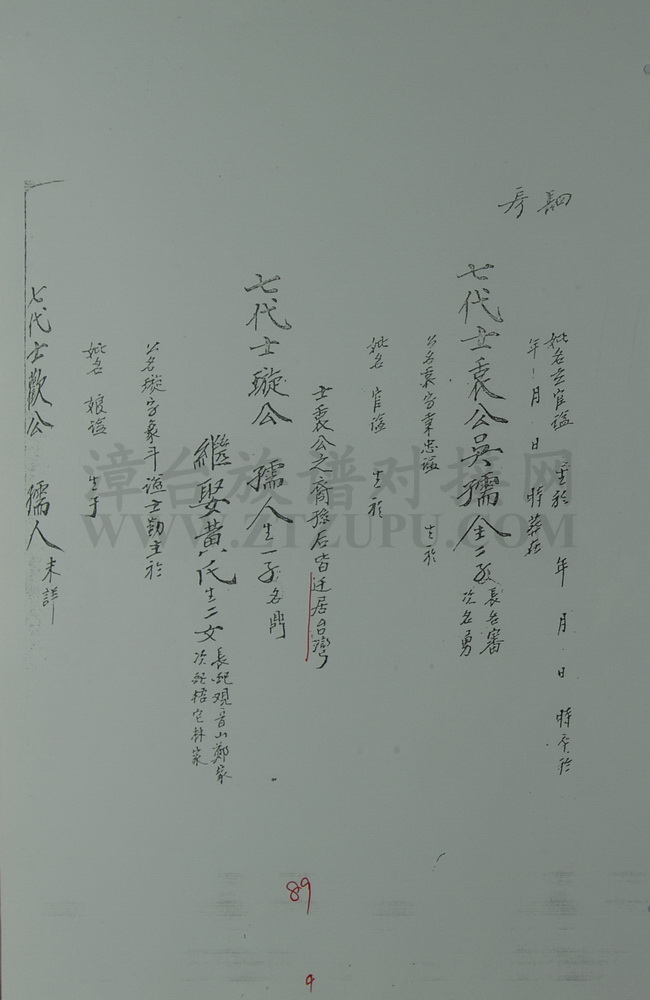 長四
房
妣名 官謚 生於 年 月 日 時 卒於
年 月 日 時 葬在
七代士袞公吳孺人生二子 長名審
次名勇
公名袞字 忠謚 生於
妣名 官謚 生於
士袞公之裔孫后皆迁居台灣
七代士璇公 孺人生一子名鬥
繼娶黃氏生二女 長妃观音山鄭家
次妃 林家
公名璇字象斗謚士勤生於
妣名 娘謚 生于
七代士歡公 孺人未詳
漳台族谱对接网
WWW.ZTZUPU.COM
89
9